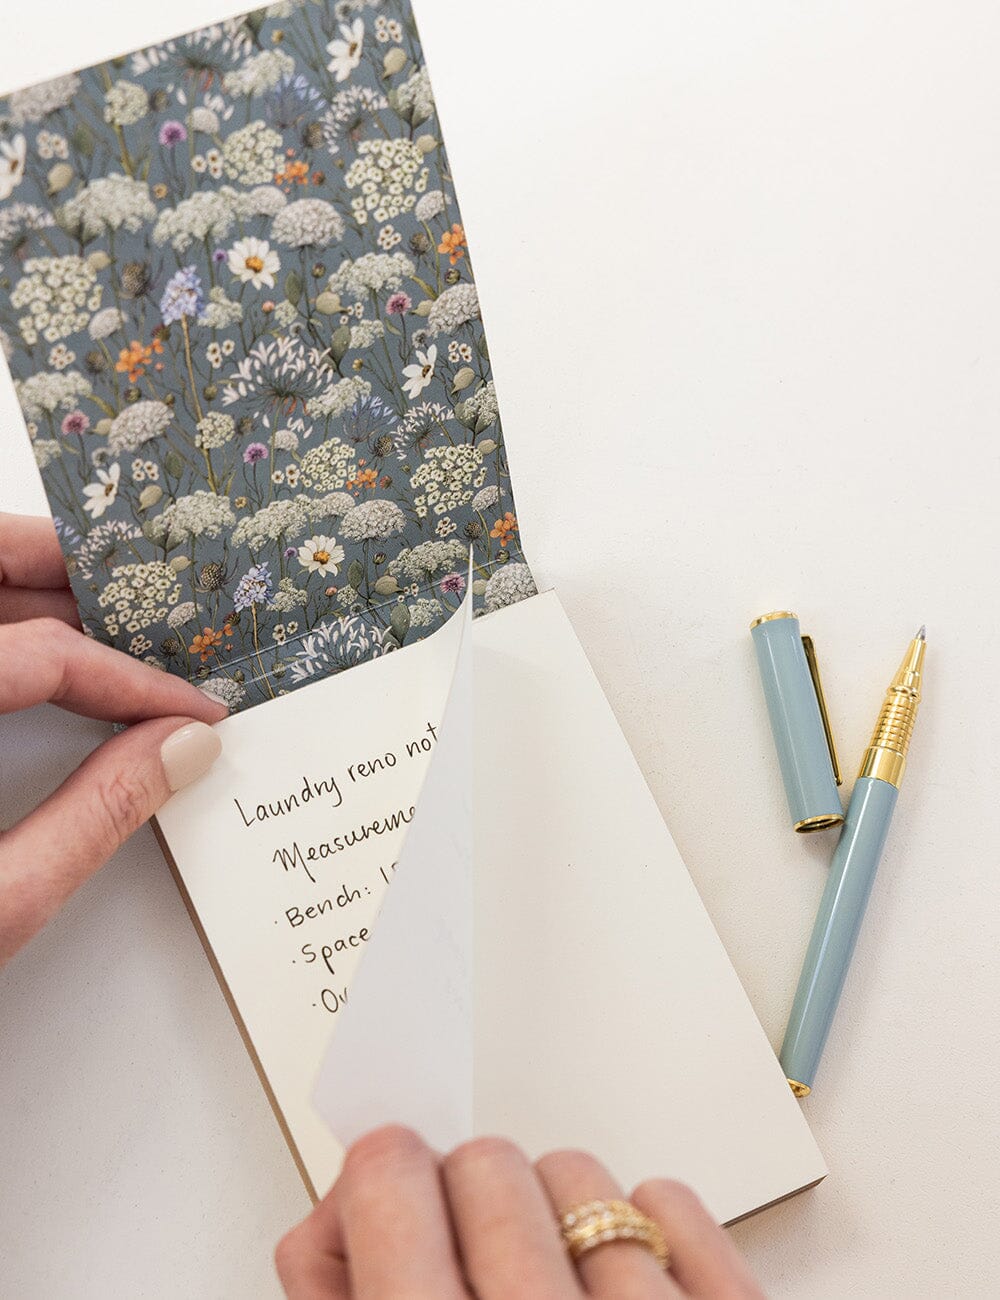 Laundry reno not
Measureme
· Bench: 1
· Space
· Ov